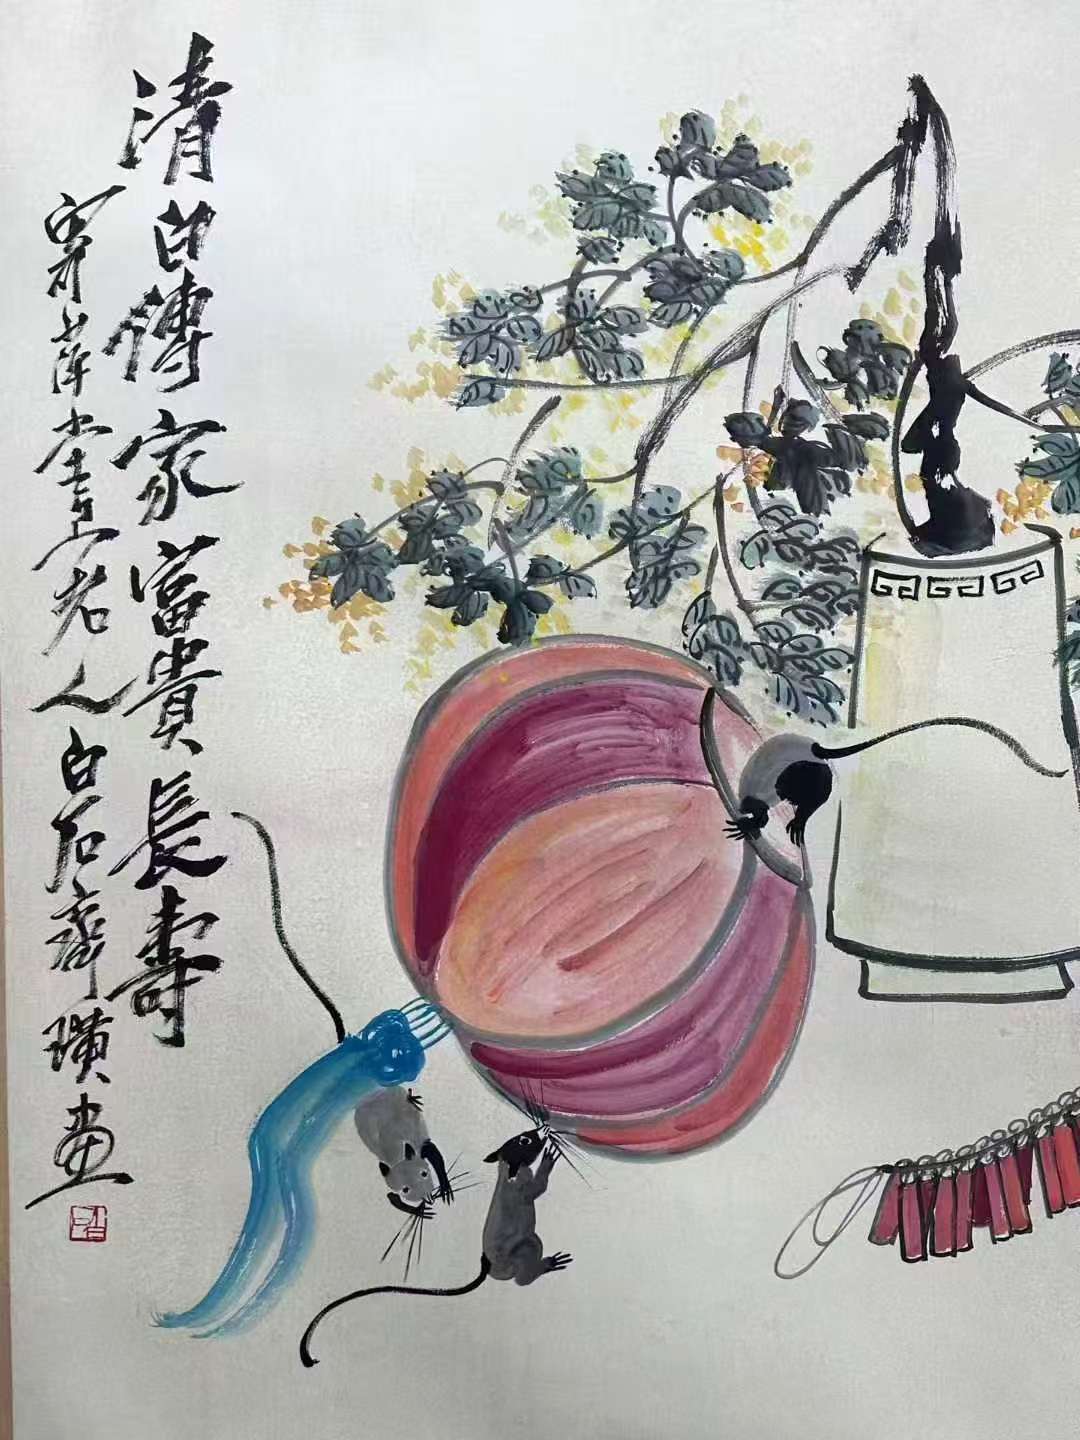 清白傳家富貴長壽
寄萍堂上老人白石齊璜畫
白石